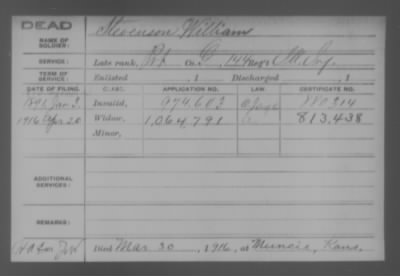 DEAD
Stevenson Williams
NAME OF SOLDIER:
SERVICE: Late rank, Pvt Co. G, 144 Reg't Inf.
TERM OF SERVICE: Enlisted , 1 Discharged , 1
DATE OF FILING. CLASS. APPLICATION NO. LAW. CERTIFICATE NO.
1891 Jan 3. Invalid, 974.603 314
1916 Apr 20 Widow, 1,064,791 813,438
Minor,
ADDITIONAL SERVICES:
REMARKS:
Died Mar. 30, 1916, at Muncie, Kans.